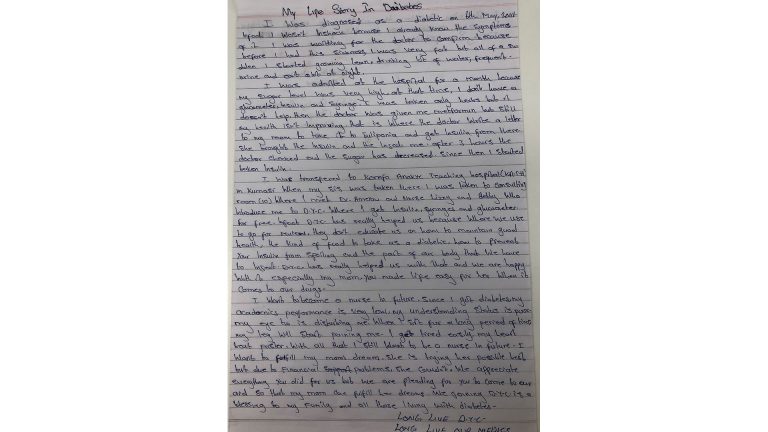 My Life Story In Daibetes
I was diagnosed as a diabetic on 6th May,
I wasn't because I already know the symptoms
of it. I was waitting for the doctor to confirm because
before I had this sickness, I was very fat but all of a su
dden I started growing lean, drinking lot of water, frequent
urine and eat alot at night.
I was admitted at the hospital for a month because
my sugar level was very high at that time, I don't have a
glucometer, Insulin and syringe. I was taken only but it
doesn't help then the doctor was given me metformin but still
my health isn't improving that is where the doctor write a letter
to my mom to take it to and get Insulin from there.
She brought the Insulin and the inject me. after 3 hours the
doctor checked and the sugar has decreased since then I started
taken Insulin.
I was transferred to Komfo Anokye Teaching hospital (KATH)
in Kumasi when my was taken there I was taken to consulting
room (10) where I meet Dr. and Nurse and who
introduce me to D.Y.C. where I get Insulin, syringes and glucometer
for free. D.Y.C has really helped us because where we use
to go for, they don't educate us on how to maintain good
health, the kind of food to take as a diabetic, how to prevent
your Insulin from spoiling and the part of our body that we have
to inject. have really helped us with that and we are happy
with it especially my mom. You made life easy for her when it
comes to our drugs.
I want to become a nurse in future. Since I got diabetes my
academics performance is very low, my understanding status is poor
my eye too is disturbing me. When I sit for a long period of time
my leg will start paining me. I get tired easily, my heart
beat faster. With all that I still want to be a nurse in future. I
want to fulfill my mom dream. She is trying her possible best
but due to Financial problems, she couldn't. We appreciate
everything you did for us but we are pleading for you to come to our
aid so that my mom can fulfill her dreams. D.Y.C is a
blessing to my family and all those living with diabetes.
LONG LIVE D.Y.C.
LONG LIVE OUR MEDICS